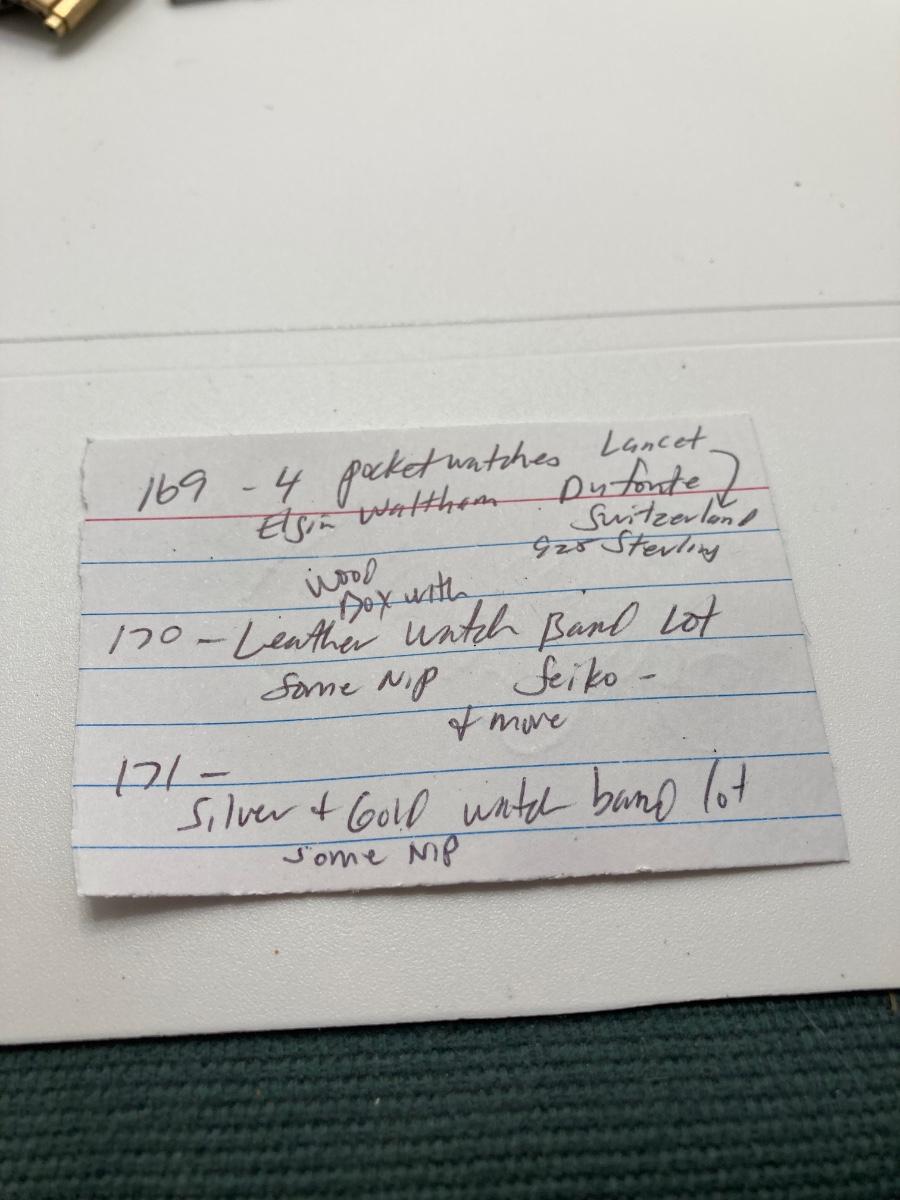 169 - 4 pocketwatches Lancet
Elgin Waltham Dufonte
Switzerland
925 Sterling
Wood
Box with
170 - Leather Watch Band Lot
Some NIP Seiko -
& more
171 -
Silver + Gold watch band lot
Some NIP